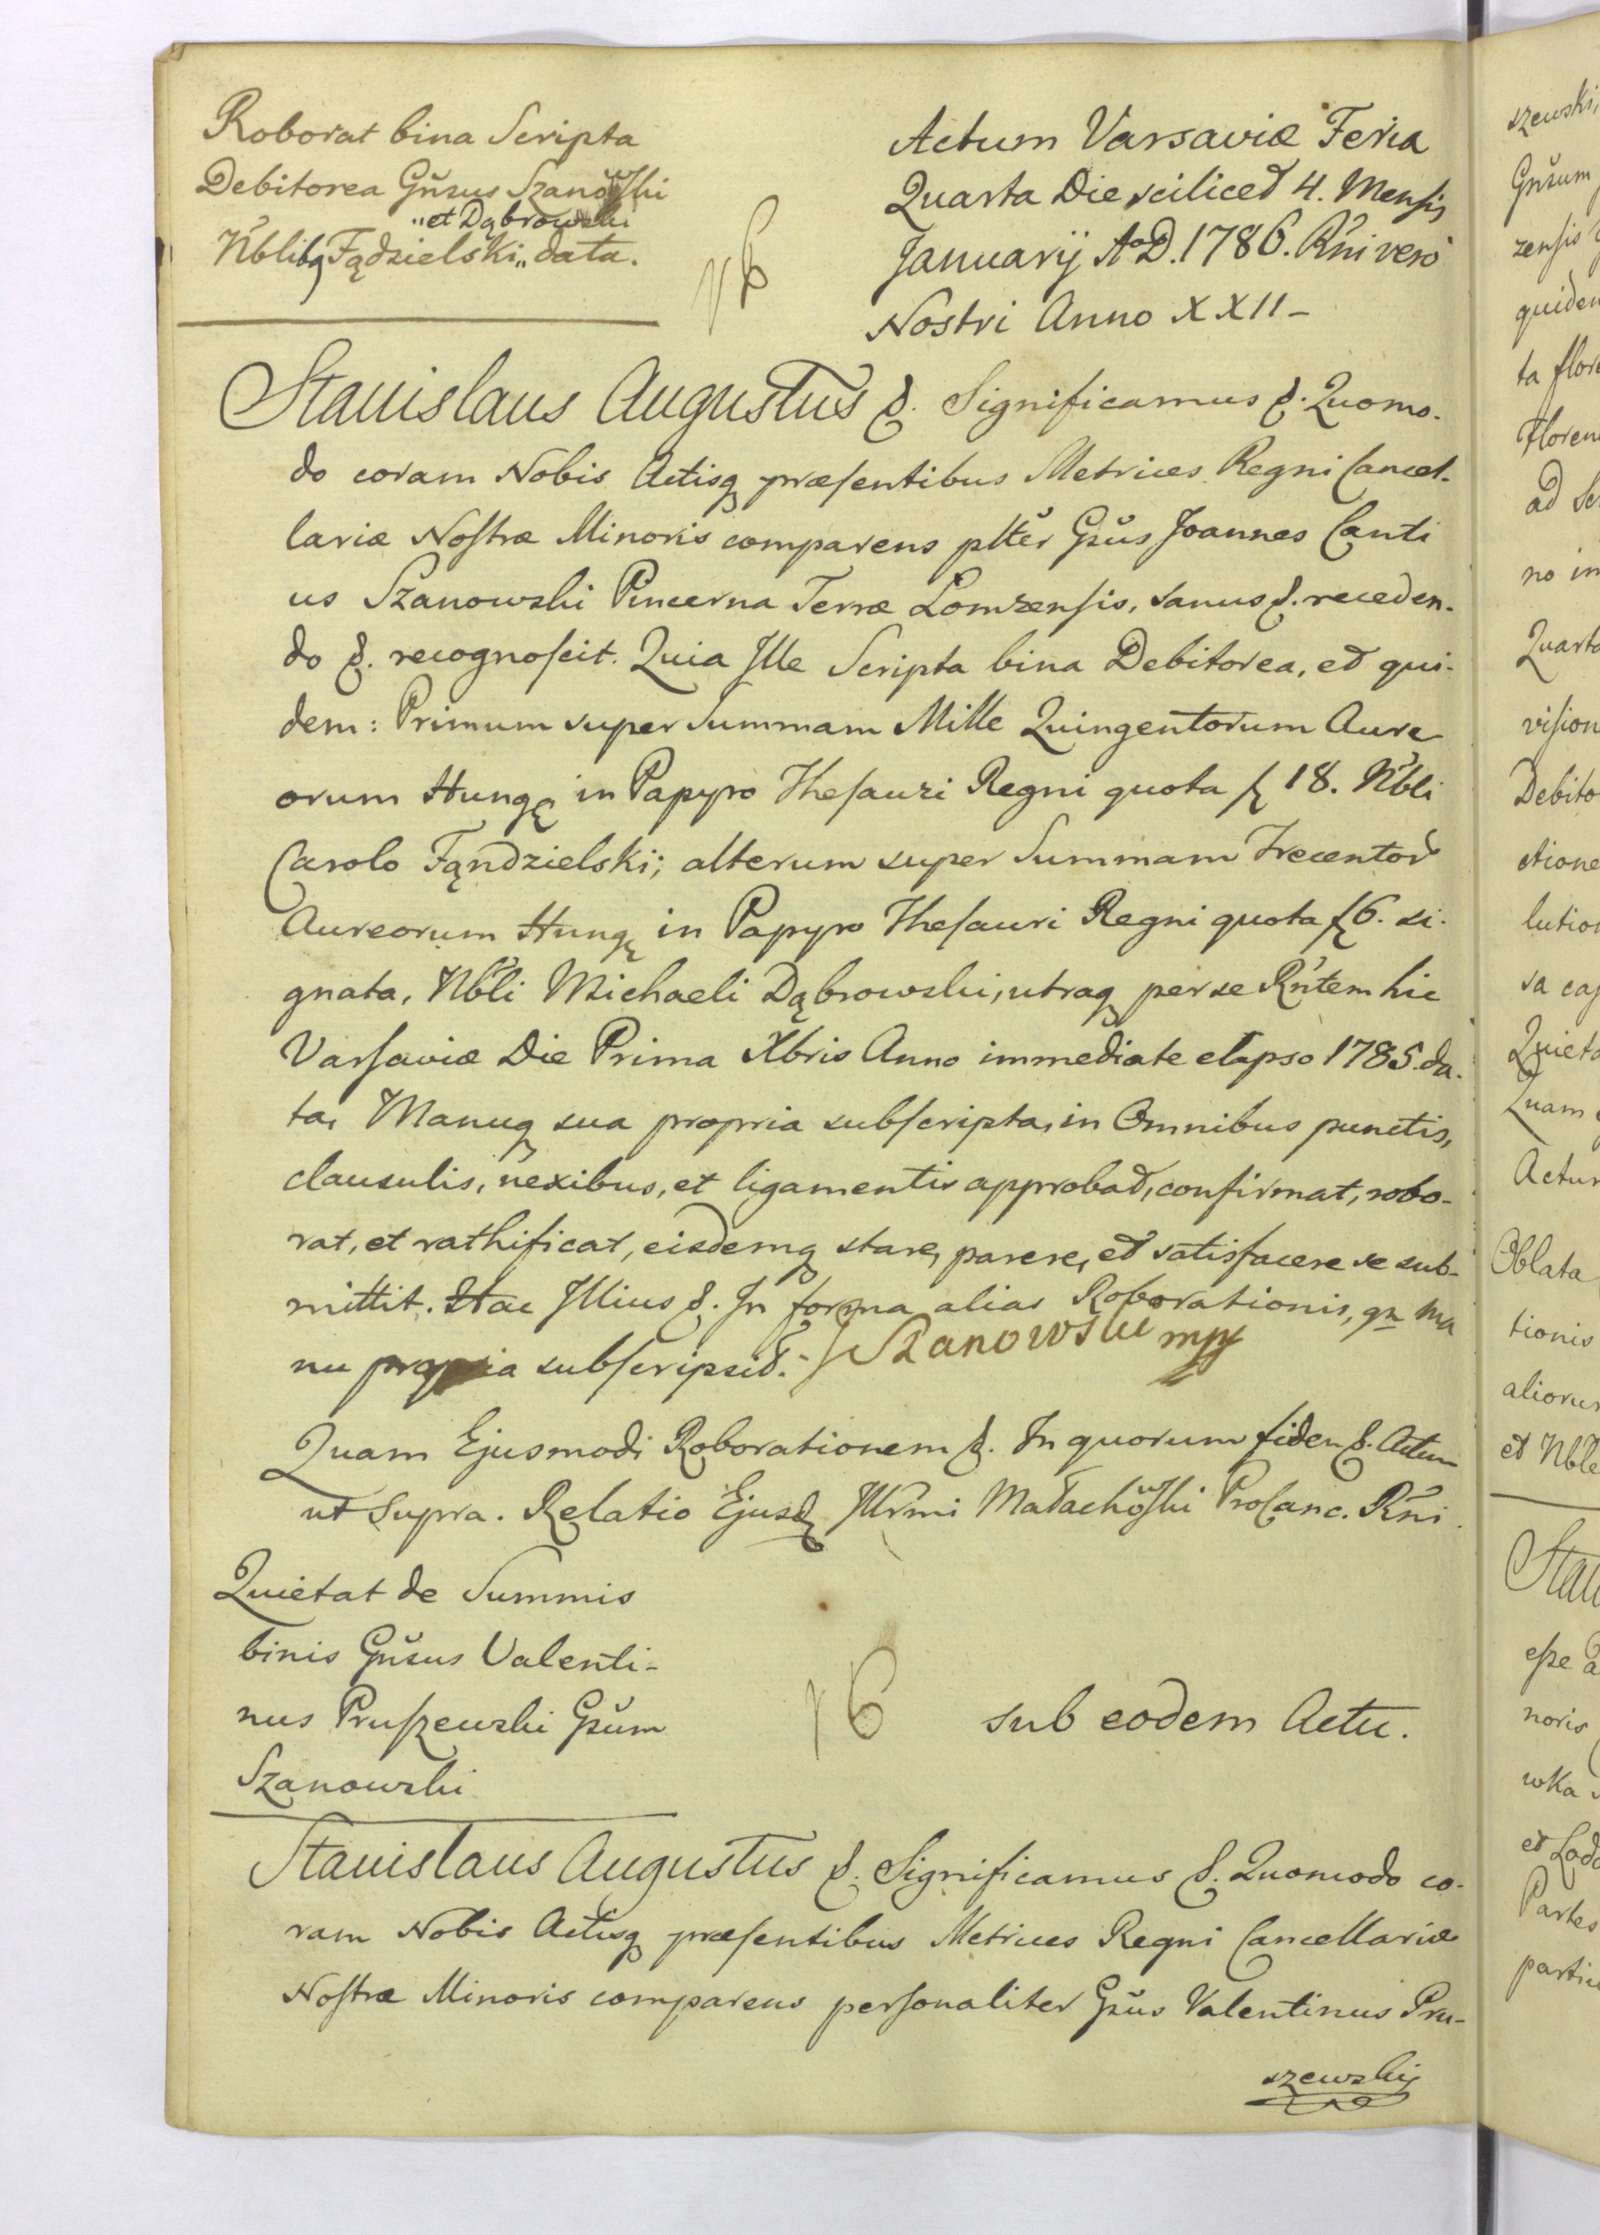 Roborat bina Scripta
Debitorea Gňsus Szanowski
"et Dąbrowski
Nblibq Fądzielski" data.
Actum Varsaviæ Feria
Quarta Die scilicet 4. Mensis
Januarij AoD. 1786. Rńi vero
Nostri Anno XXII-
Stanislaus Augustus &. Significamus &. Quomo-
do coram Nobis Actisq præsentibus Metrices Regni Cancel-
lariæ Nostræ Minoris comparens plter Gsus Joannes Canti
us Szanowski Pincerna Terræ Lomzensis, sanus &. receden-
do &. recognoscit. Quia Ille Scripta bina Debitorea, et qui-
dem: Primum super Summam Mille Quingentorum Aure
orum Hung in Papyro Thesauri Regni quota f 18. Nbli
Carolo Fądzielski; alterum super Summam Trecentor
Aureorum Hung in Papyro Thesauri Regni quota f 6. si-
gnata, Nbli Michaeli Dąbrowski, utraq per se Rńtem hic
Varsaviæ Die Prima Xbris Anno immediate elapso 1785. da-
ta, Manuq sua propria subscripta, in Omnibus punctis,
clausulis, nexibus, et ligamentis approbat, confirmat, robo-
rat, et rathificat, eisdemq stare, parere, et satisfacere se sub-
mittit. Hac Illius &. In forma alias Roborationis, qn ma
nu propria subscripsit.- J Szanowski mpp
Quam Ejusmodi Roborationem &. In quorum fidem &. Actum
ut supra. Relatio Ejusd Illrmi Małachowski ProCanc. Rńi.
Quietat de Summis
binis Gňsus Valenti-
nus Pruszewski Gsum
Szanowski
16
sub eodem Actu.
Stanislaus Augustus &. Significamus &. Quomodo co-
ram Nobis Actisq præsentibus Metrices Regni Cancellariæ
Nostræ Minoris comparens personaliter Gsus Valentinus Pru-
szewski
szewski,
Gňsum
zensis
quidem
ta flor
Floren
ad Sc
no im
Quarta
vision
Debito
ctione
lution
sa cap
Quieta
Quam
Actum
Oblata
tionis
aliorum
et Nble
Stan
esse a
noris
wka
et Lado
Partes
partic